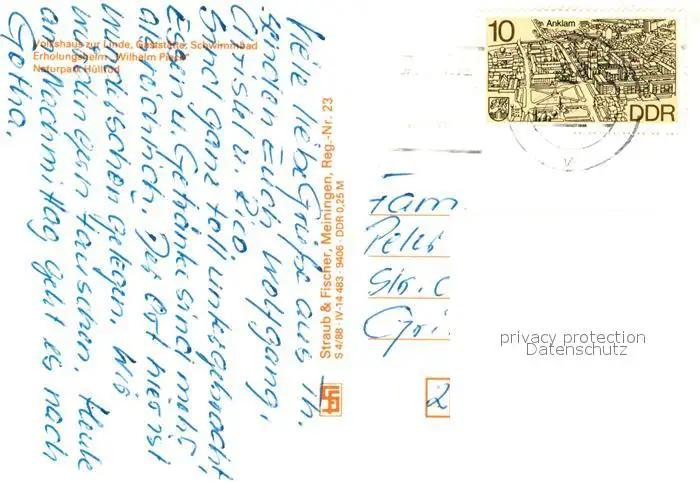 Volkshaus zur Linde, Gaststätte, Schwimmbad
Erholungsheim "Wilhelm Pieck"
Naturpark Hüllrod
Viele liebe Grüße aus Th.
senden Euch Wolfgang,
Christel u. Rico
Sind ganz toll untergebracht,
Essen u. Getränke sind mehr
als reichlich. Der Ort hier ist
wunderschön gelegen. Wir
würden gern tauschen. Heute
am Nachmittag geht es nach
Gotha.
Straub & Fischer, Meiningen, Reg.-Nr. 23
S 4/88 · IV-14 483 · 9406 · DDR 0,25 M
10
Anklam
DDR
Fam
Pet
Str.
2
privacy protection
Datenschutz